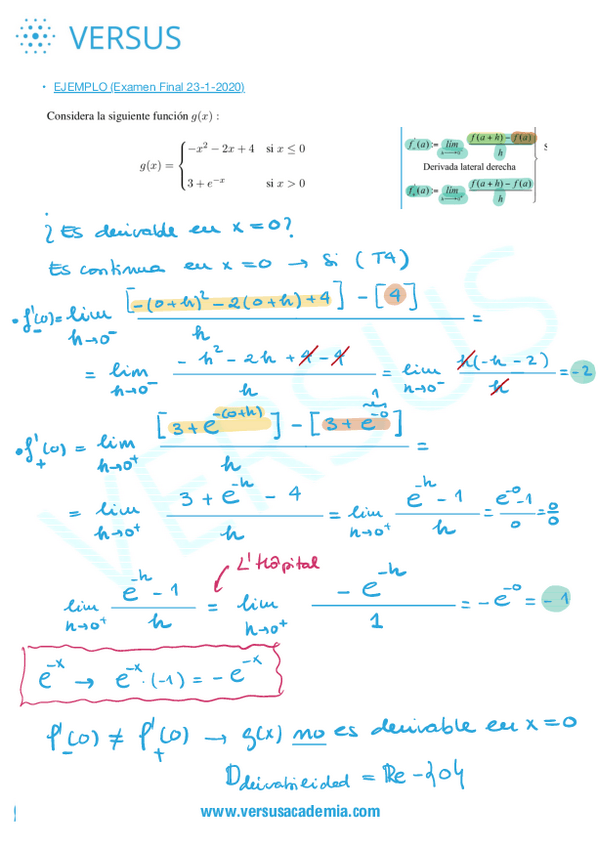 VERSUS
• EJEMPLO (Examen Final 23-1-2020)
Considera la siguiente función g(x) :
g(x) = { −x² − 2x + 4 si x ≤ 0
3 + e^{−x} si x > 0
f'₋(a) := lim_{h→0⁻} (f(a + h) − f(a)) / h
Derivada lateral derecha
f'₊(a) := lim_{h→0⁺} (f(a + h) − f(a)) / h
s
¿Es derivable en x = 0?
Es continua en x = 0 → Si (T4)
• f'₋(0) = lim_{h→0⁻} ([−(0+h)² − 2(0+h) + 4] − [4]) / h =
= lim_{h→0⁻} (−h² − 2h + 4 − 4) / h = lim_{h→0⁻} h(−h − 2) / h = −2
• f'₊(0) = lim_{h→0⁺} ([3 + e^{−(0+h)}] − [3 + e^{−0}]) / h =
1
= lim_{h→0⁺} (3 + e^{−h} − 4) / h = lim_{h→0⁺} (e^{−h} − 1) / h = (e^{−0} − 1) / 0 = 0/0
L'Hôpital
lim_{h→0⁺} (e^{−h} − 1) / h = lim_{h→0⁺} (−e^{−h}) / 1 = −e^{−0} = −1
e^{−x} → e^{−x} · (−1) = −e^{−x}
f'₋(0) ≠ f'₊(0) → g(x) no es derivable en x = 0
Dderivabilidad = Re − {0}
www.versusacademia.com
VERSUS